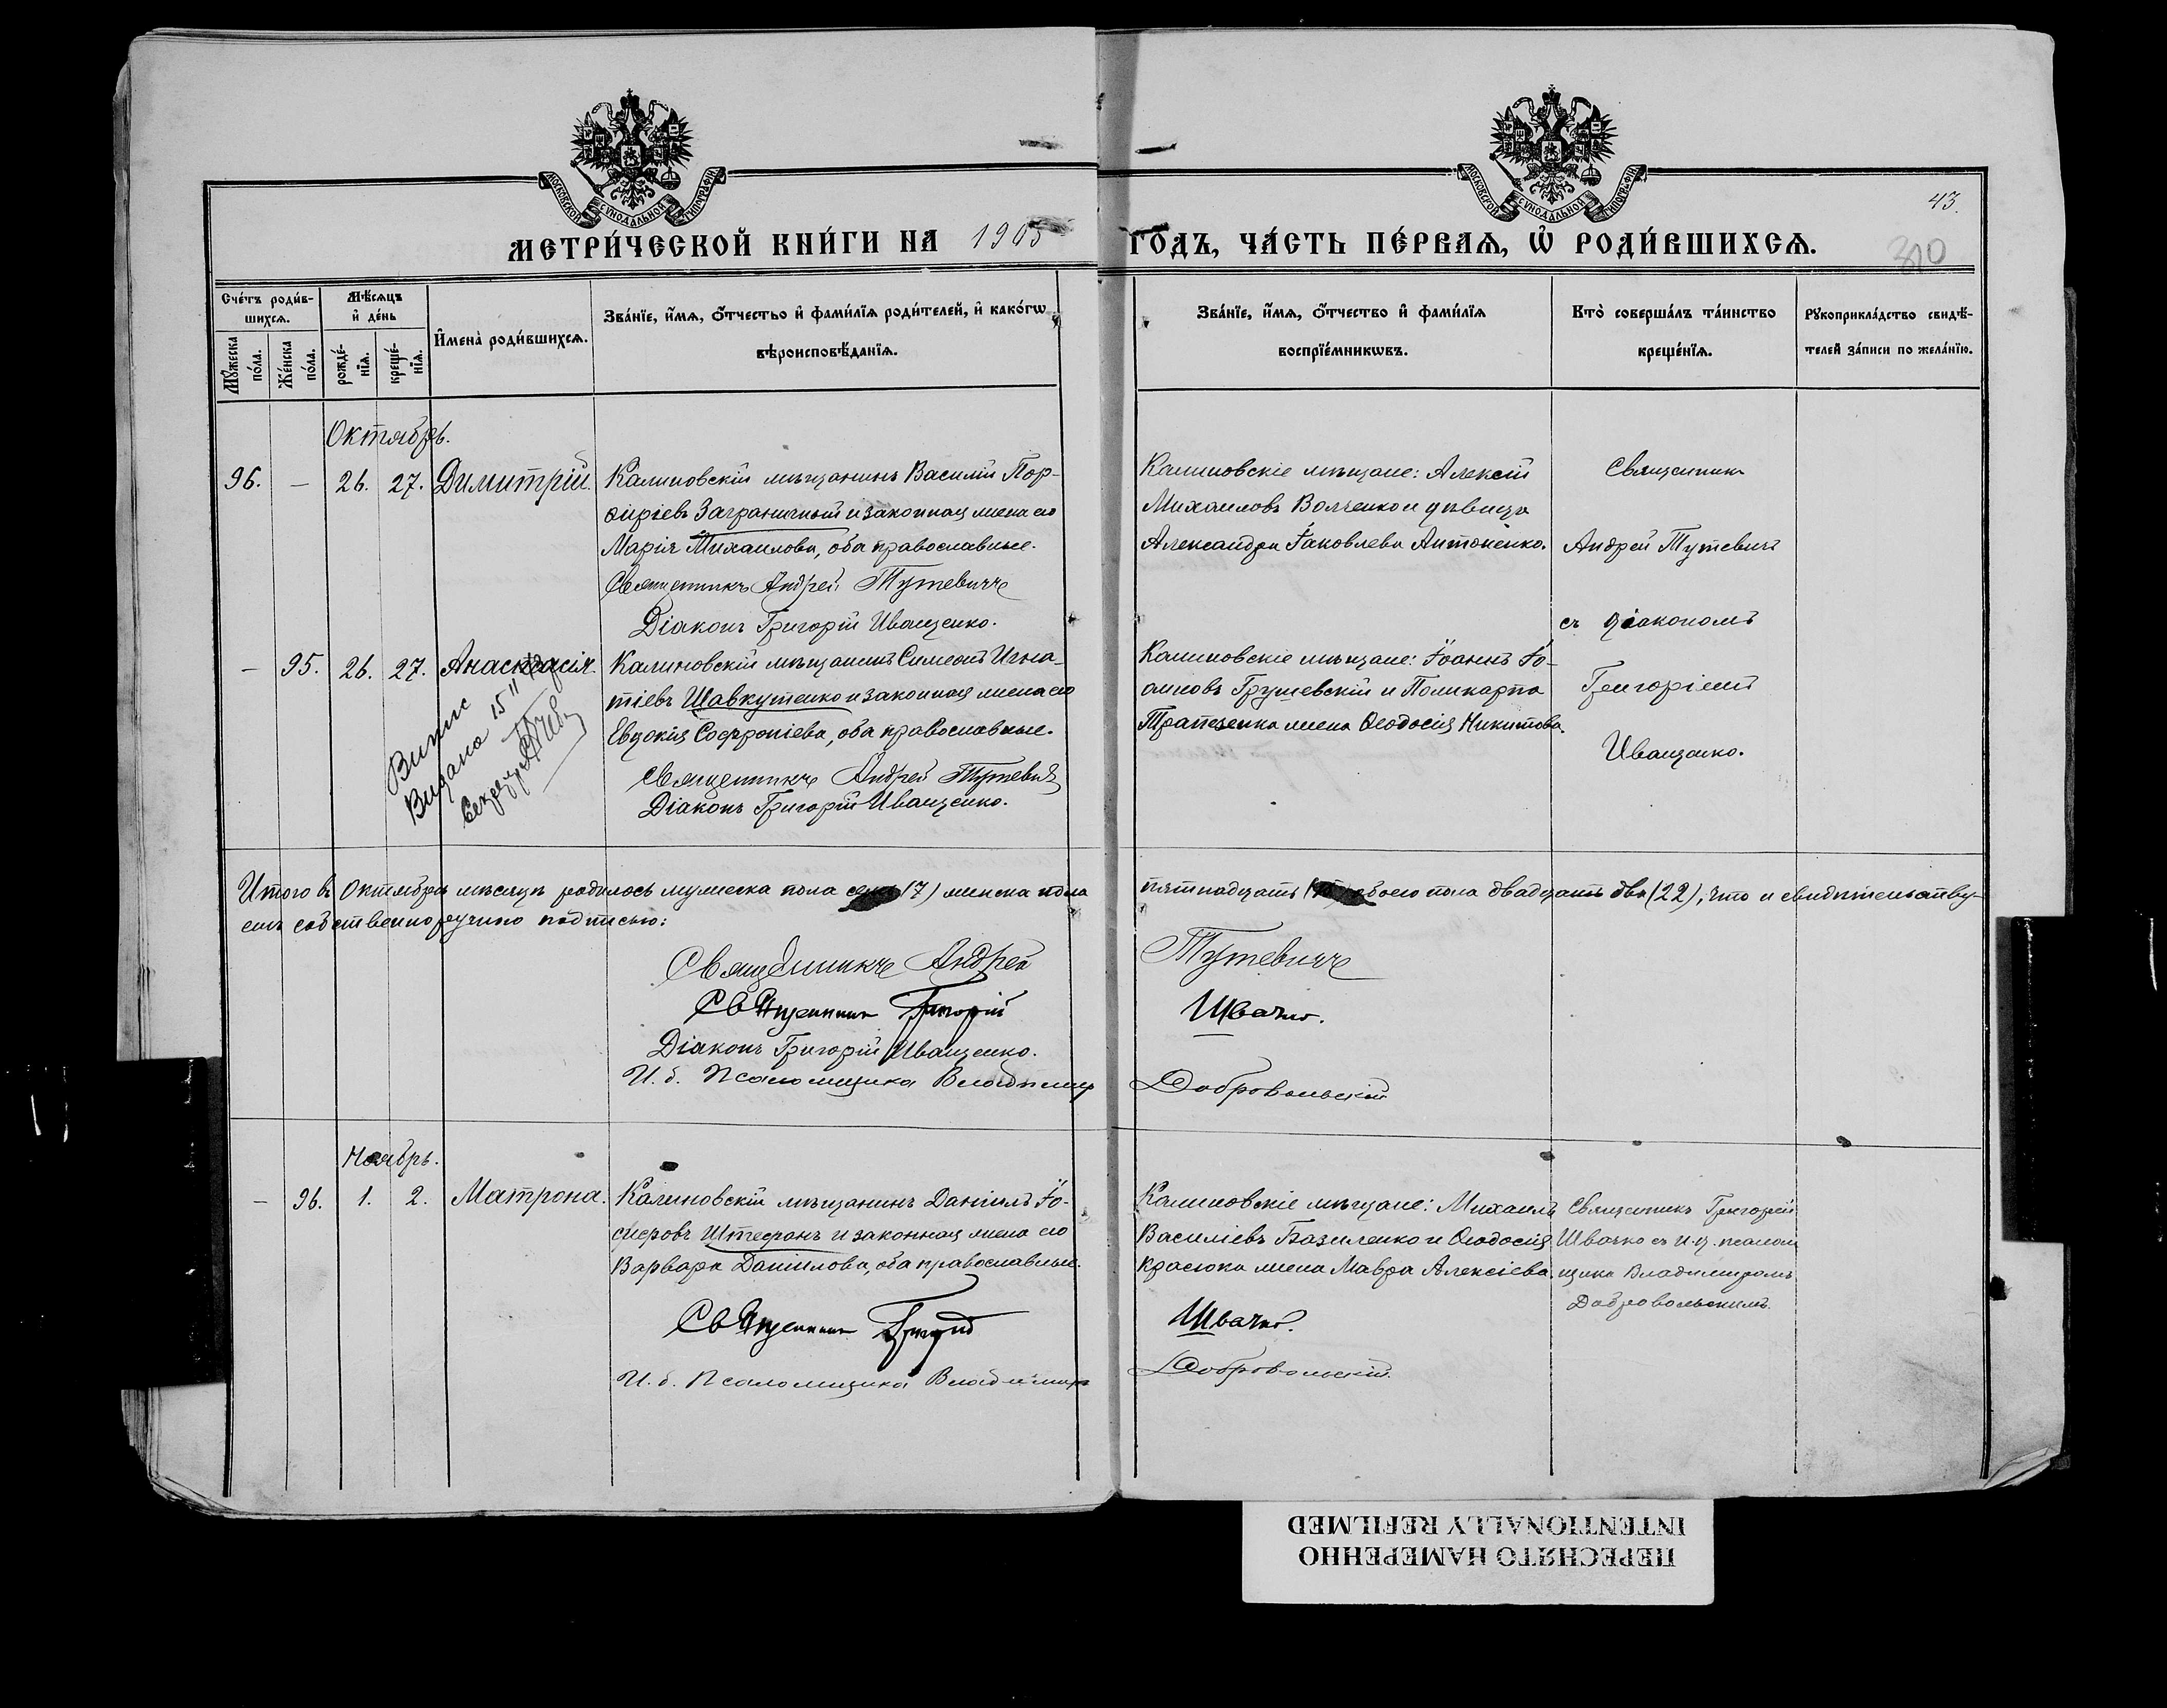 МОСКОВСКОЙ СѴНОДАЛЬНОЙ ТИПОГРАФІИ
МОСКОВСКОЙ СѴНОДАЛЬНОЙ ТИПОГРАФІИ
43.
310
МЕТРИ́ЧЕСКОЙ КНИ́ГИ НА 1905 ГО́ДЪ, ЧА́СТЬ ПЕ́РВАѦ, Ѡ҆ РОДИ́ВШИХСѦ.
Сче́тъ роди́в-
шихсѧ.
Мѣ́сѧцъ
и҆ де́нь
И҆мена̀ роди́вшихсѧ.
Зва́нїе, и҆́мѧ, ѻ҆́тчество и҆ фами́лїѧ роди́телей, и҆ како́гѡ
вѣроисповѣ́данїѧ.
Зва́нїе, и҆́мѧ, ѻ҆́тчество и҆ фами́лїѧ
воспрїе́мникѡвъ.
Кто̀ соверша́лъ та́инство
креще́нїѧ.
Рꙋкоприкла́дство свидѣ́-
телей за́писи по жела́нїю.
Мꙋ́жеска
по́ла.
Же́нска
по́ла.
рожде́-
нїѧ.
креще́-
нїѧ.
Октябрь.
96. – 26. 27. Димитрій. Калиновскій мѣщанинъ Василій Пор-
фиріевъ Заграничный и законная жена его
Марія Михаилова, оба православные.
Священникъ Андрей Тутевичъ
Діаконъ Григорій Иващенко.
Калиновскіе мѣщане: Алексій
Михаиловъ Волченко и дѣвица
Александра Іаковлева Антоненко.
Священникъ
Андрей Тутевичъ
съ діакономъ
Григоріемъ
Иващенко.
– 95. 26. 27. Анастасія. Калиновскій мѣщанинъ Симеонъ Игна-
тіевъ Шавкутенко и законная жена его
Евдокія Софроніева, оба православные.
Священникъ Андрей Тутевичъ
Діаконъ Григорій Иващенко.
Калиновскіе мѣщане: Іоаннъ Іо-
анновъ Грушевскій и Поликарпа
Трапезенка жена Ѳеодосія Никитова.
Випис
Видано 15
Секрет.
Итого въ Октябрѣ мѣсяцѣ родилось мужеска пола семь (7) женска пола пятнадцать (15) обоего пола двадцать два (22), что и свидѣтельству-
емъ собственноручною подписью:
Священникъ Андрей Тутевичъ
Священникъ Григорій Швачко.
Діаконъ Григорій Иващенко.
И. д. Псаломщика Владиміръ Добровольскій
Ноябрь.
– 96. 1. 2. Матрона. Калиновскій мѣщанинъ Даніилъ Іо-
сифовъ Штефанъ и законная жена его
Варвара Даніилова, оба православные.
Священникъ Григорій Швачко.
И. д. Псаломщика Владиміръ Добровольскій.
Калиновскіе мѣщане: Михаилъ
Василіевъ Базиленко и Ѳеодосія
Красюка жена Мавра Алексіева.
Священникъ Григорій
Швачко съ и. д. псалом
щика Владиміромъ
Добровольскимъ.
ПЕРЕСНЯТО НАМЕРЕННО
INTENTIONALLY REFILMED